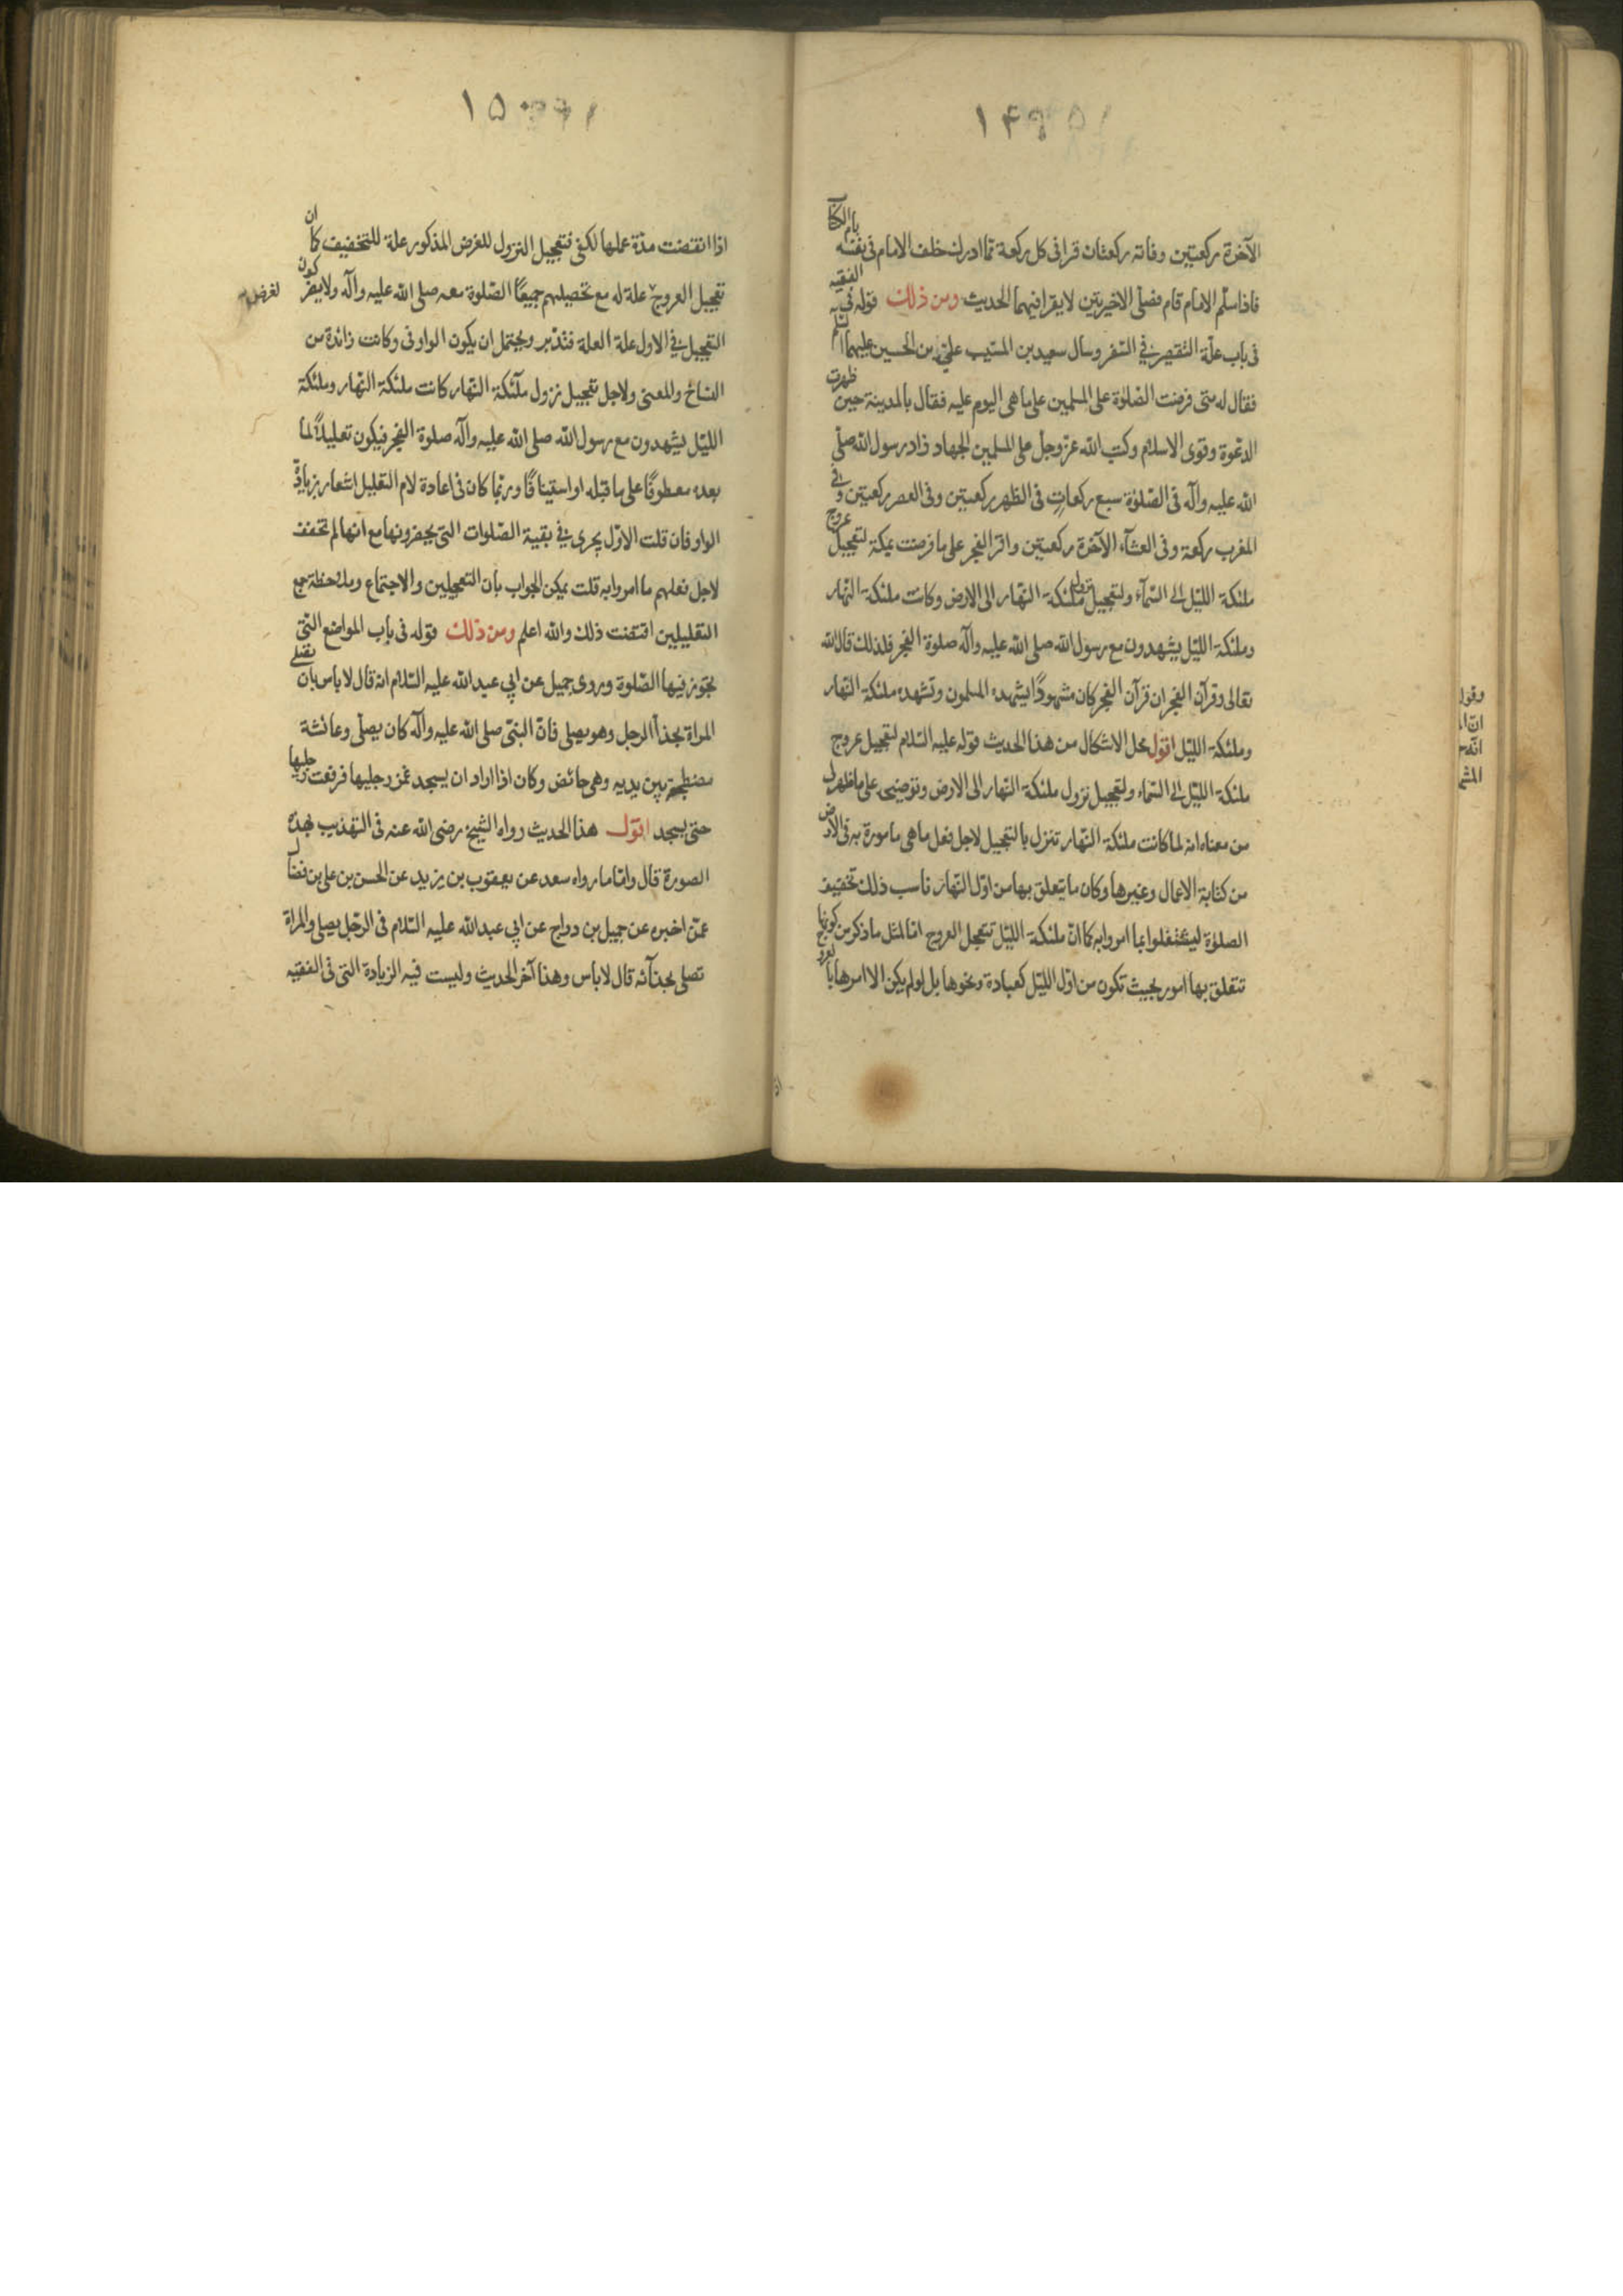 ١٤٩
الآخرة ركعتين وفاته ركعتان قرا فى كل ركعة مما ادرك خلف الامام فى نفسه بام الكتاب
فاذا سلّم الامام قام فصلّى الاخيرتين لا يقرا فيهما الحديث ومن ذلك قوله فى الفقيه
فى باب علّة التقصير فى السّفر وسال سعيد بن المسيّب علىّ بن الحسين عليهما السلم
فقال له متى فرضت الصّلوٰة على المسلمين على ما هى اليوم عليه فقال بالمدينة حين ظهرت
الدّعوة وقوى الاسلام وكتب الله عزّ وجلّ على المسلمين الجهاد زاد رسول الله صلّى
الله عليه وآله فى الصّلوٰة سبع ركعات فى الظهر ركعتين وفى العصر ركعتين وفى
المغرب ركعة وفى العشآء الآخرة ركعتين واقر الفجر على ما فرضت بمكة لتعجيل عروج
ملئكة الليّل الى السّمآء ولتعجيل نزول ملئكة النّهار الى الارض وكانت ملئكة النّهار
وملئكة الليّل يشهدون مع رسول الله صلى الله عليه وآله صلوة الفجر فلذلك قال الله
تعالى وقرآن الفجر ان قرآن الفجر كان مشهودًا يشهده المسلمون وتشهده ملئكة النّهار
وملئكة الليّل اقول محل الاشكال من هذا الحديث قوله عليه السّلام لتعجيل عروج
ملئكة الليّل الى السّماء ولتعجيل نزول ملئكة النّهار الى الارض وتوضيحه على ما ظهر لى
من معناه انه لما كانت ملئكة النّهار تنزل بالتعجيل لاجل فعل ما هى مامورة به فى الارض
من كتابة الاعمال وغيرها وكان ما يتعلق بها من اوّل النّهار ناسب ذلك تخفيف
الصلوٰة ليشتغلوا بما امروا به كما انّ ملئكة الليّل تتعجل العروج امّا لمثل ما ذكر من كونها
تتعلق بها امور بحيث تكون من اوّل الليّل كعبادة ونحوها بل لو لم يكن الا امرها بالعروج
وقول
انّ ا
انّه
المش
١٥٠
اذا انقضت مدّة عملها لكفى فتعجيل النزول للغرض المذكور علة للتخفيف كما ان
تعجيل العروج علة له مع تحصيلهم جميعًا الصّلوة معه صلى الله عليه وآله ولا يضر كون
التعجيل فى الاول علة العلة فتدّبر ويحتمل ان يكون الواو فى وكانت زائدة من
النسّاخ والمعنى ولاجل تعجيل نزول ملآئكة النّهار كانت ملئكة النّهار وملئكة
الليّل يشهدون مع رسول الله صلى الله عليه وآله صلوة الفجر فيكون تعليلًا لما
بعده معطوفًا على ما قبله او استينافًا وربّما كان فى اعادة لام التعليل اشعار بزيادة
الواو فان قلت الاوّل يجرى فى بقية الصّلوات التى يحضرونها مع انها لم تخفف
لاجل فعلهم ما امروا به قلت يمكن الجواب بان التعجيلين والاجتماع وملاحظة جمع
التعليلين اقتضت ذلك والله اعلم ومن ذلك قوله فى باب المواضع التى
تجوز فيها الصّلوة وروى جميل عن ابى عبد الله عليه السّلام انه قال لا باس بان تصلى
المراة بحذا الرجل وهو يصلى فانّ النبىّ صلى الله عليه وآله كان يصلّى وعائشة
مضطجعة بين يديه وهى حائض وكان اذا اراد ان يسجد غمز رجليها فرفعت رجليها
حتى يسجد اقول هذا الحديث رواه الشّيخ رضى الله عنه فى التهذيب بهذه
الصورة قال وامّا ما رواه سعد عن يعقوب بن يزيد عن الحسن بن على بن فضال
عمّن اخبره عن جميل بن دراج عن ابى عبد الله عليه السّلام فى الرّجل يصلى والمراة
تصلى بحذآئه قال لا باس وهذا آخر الحديث وليست فيه الزيادة التى فى الفقيه